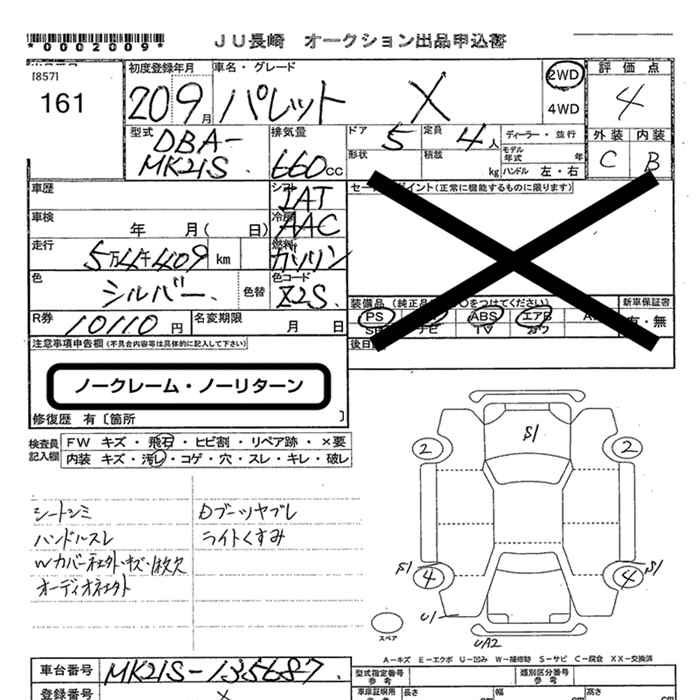 *0002009*
JU長崎 オークション出品申込書
[857]
161
初度登録年月
209月
車名・グレード
パレット X
2WD
4WD
評価点
4
外装 内装
C B
型式
DBA-
MK21S
排気量
660cc
ドア 5
定員 4人
形状
積載 kg
ディーラー・並行
モデル年式 年
ハンドル 左・右
車歴
シフト IAT
車検 年 月(日)
冷房 AAC
走行 5万4千409 km
燃料 ガソリン
色 シルバー
色替
色コード Z2S
R券 10110円
名変期限 月 日
(正常に機能するものに限ります)
装備品
PS
ABS
エアB
TV
新車保証書
有・無
注意事項申告欄(不具合内容等は具体的に記入して下さい)
ノークレーム・ノーリターン
修復歴 有〔箇所 〕
検査員記入欄
FW キズ・飛石・ヒビ割・リペア跡・×要
内装 キズ・汚レ・コゲ・穴・スレ・キレ・破レ
シートシミ
ハンドルスレ
オーディオネェクト
Dブーツヤブレ
ライトくすみ
S1
2
2
S1
4
4
S1
U1
UA2
スペア
A-キズ E-エクボ U-凹み W-補修跡 S-サビ C-腐食 XX-交換済
車台番号 MK21S-135687
型式指定番号 参考
類別区分番号 参考
登録番号
車庫証明用 参考
長さ cm
幅 cm
高さ cm